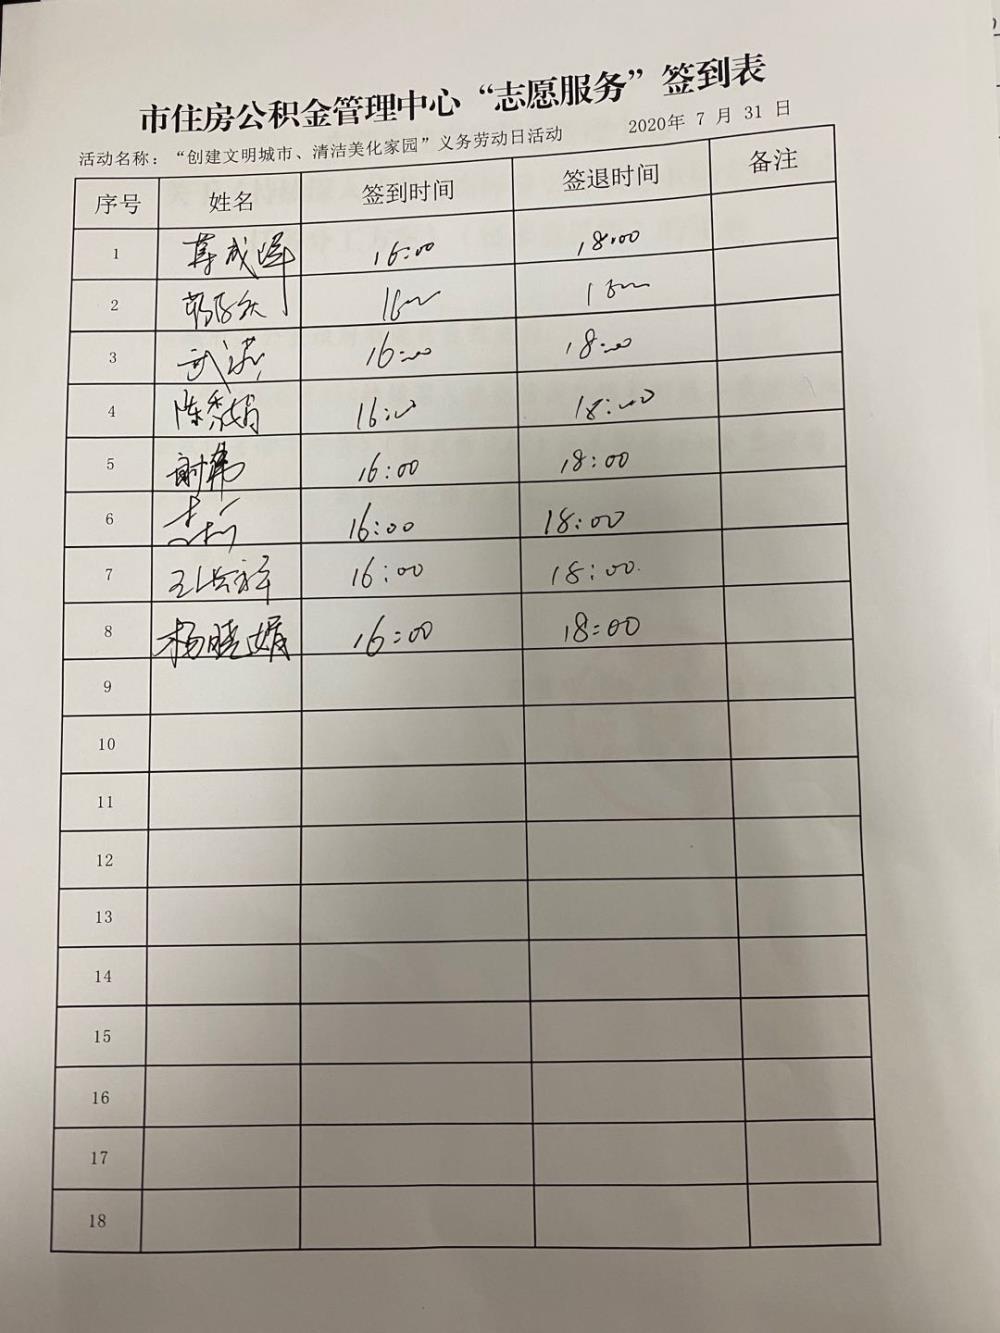 市住房公积金管理中心“志愿服务”签到表
活动名称：“创建文明城市、清洁美化家园”义务劳动日活动 2020年 7 月 31 日
序号 姓名 签到时间 签退时间 备注
1 16:00 18:00
2
3 16:00 18:00
4 陈 16:00 18:00
5 谢 16:00 18:00
6 16:00 18:00
7 16:00 18:00
8 杨晓娟 16:00 18:00
9
10
11
12
13
14
15
16
17
18